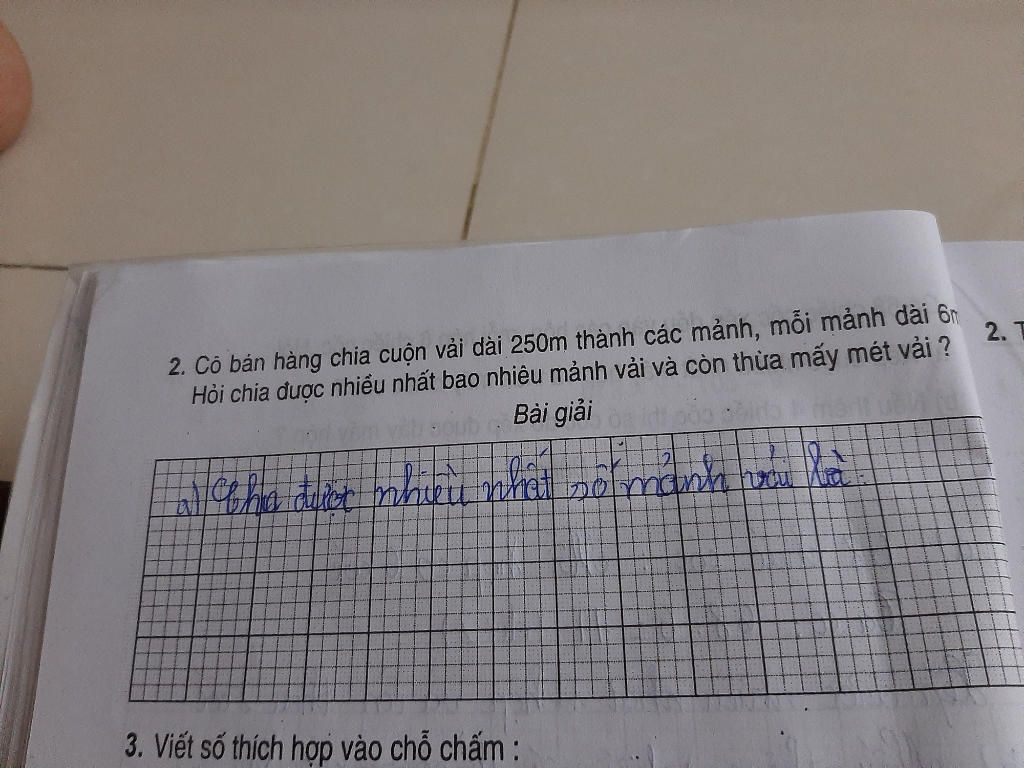 2. Cô bán hàng chia cuộn vải dài 250m thành các mảnh, mỗi mảnh dài 6m
Hỏi chia được nhiều nhất bao nhiêu mảnh vải và còn thừa mấy mét vải ?
Bài giải
a) Chia được nhiều nhất số mảnh vải là:
3. Viết số thích hợp vào chỗ chấm :
2.